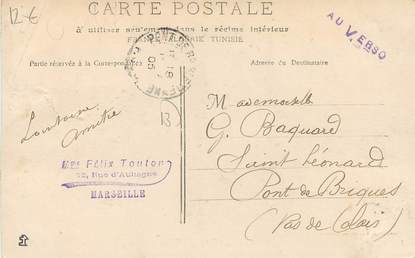 12€
CARTE POSTALE
à utiliser seulement dans le régime intérieur
FRANCE, ALGÉRIE TUNISIE
AU VERSO
Partie réservée à la Correspondance
Adresse du Destinataire
Lointaine
amitié
13
Mademoiselle
G. Baquard
Saint Léonard
Pont de Briques
(Pas de Calais)
Félix Touton
22, Rue d'Aubagne
MARSEILLE